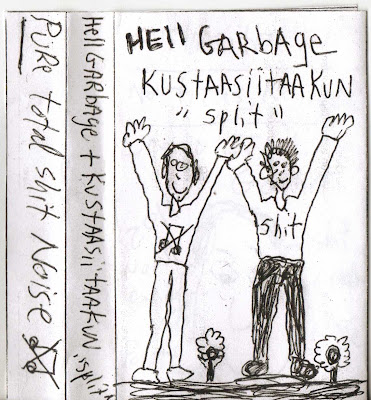 HEll GARbAGE
KUSTAASiiTAAKUN
"split"
shit
HEll GARbAGE + KUSTAASiiTAAKUN "split"
PURE total shit NoisE